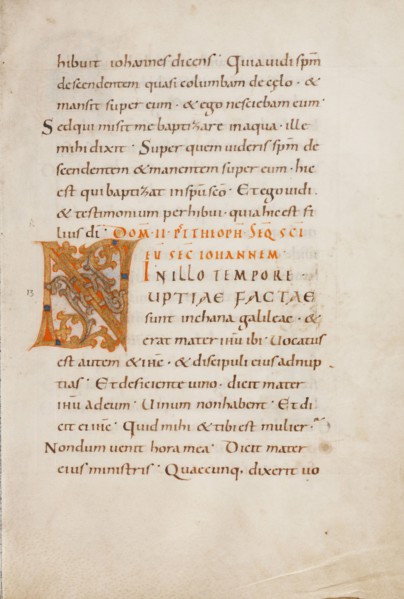 hibuit iohannes dicens · Quia uidi spm
descendentem quasi columbam de cęlo · &
mansit super eum · & ego nesciebam eum ·
Sed qui misit me baptizare in aqua · ille
mihi dixit · Super quem uideris spm de
scendentem & manentem super eum · hic
est qui baptizat in spu sco · Et ego uidi ·
& testimonium perhibui · quia hic est fi
lius di · DOM · II · P THEOPH SEQ SCI
EU SEC IOHANNEM ·
IN ILLO TEMPORE ·
13
NUPTIAE FACTAE
sunt in chana galileae · &
erat mater ihu ibi · Uocatus
est autem & ihc · & discipuli eius ad nup
tias · Et deficiente uino · dicit mater
ihu ad eum · Uinum non habent · Et di
cit ei ihc · Quid mihi & tibi est mulier ·
Nondum uenit hora mea · Dicit mater
eius ministris · Quaecunq · dixerit uo